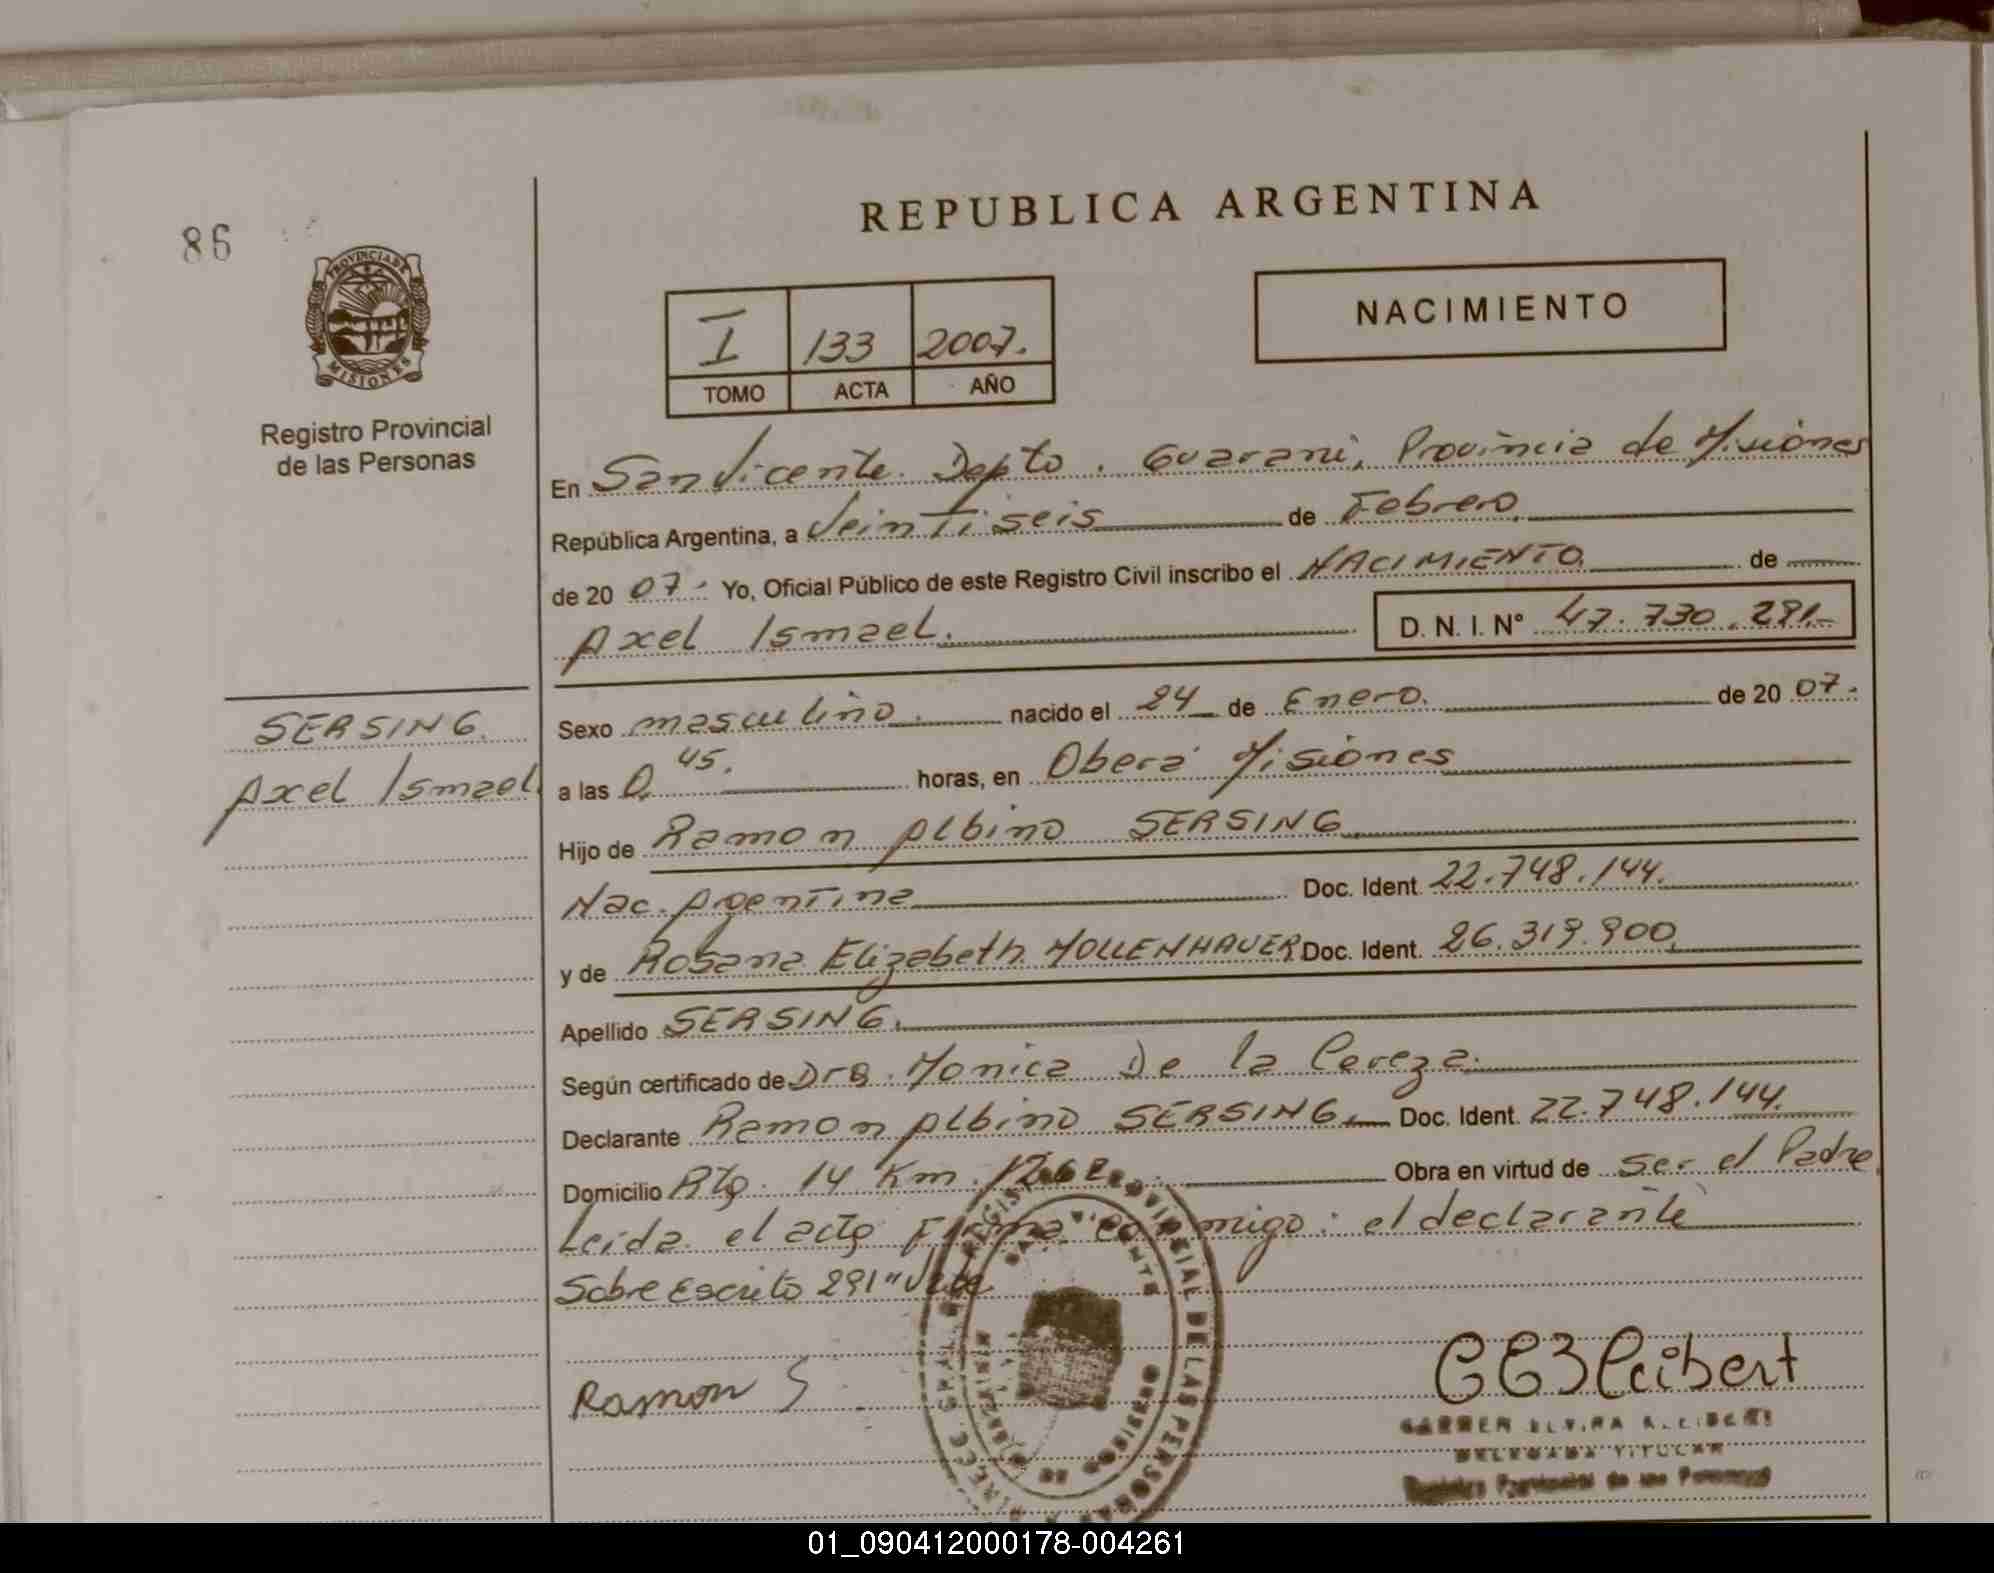 REPUBLICA ARGENTINA
86
PROVINCIA DE
MISIONES
Registro Provincial
de las Personas
I 133 2007.
TOMO ACTA AÑO
NACIMIENTO
En San Vicente. Depto. Guarani, Provincia de Misiones
República Argentina, a Veintiseis de Febrero.
de 20 07. Yo, Oficial Público de este Registro Civil inscribo el NACIMIENTO. de
Axel Ismael. D. N. I. N° 47.730.291.-
SERSING.
Axel Ismael.
Sexo masculino. nacido el 24 de Enero. de 20 07.
a las 0.45. horas, en Oberá Misiones
Hijo de Ramon Albino SERSING
Nac. Argentina Doc. Ident. 22.748.144.
y de Rosana Elizabeth MOLLENHAUER Doc. Ident. 26.319.900.
Apellido SERSING.
Según certificado de Dra. Monica De la Cereza.
Declarante Ramon Albino SERSING. Doc. Ident. 22.748.144.
Domicilio Rta. 14 Km. 1262 Obra en virtud de ser el Padre.
Leida el acta Firma conmigo: el declarante
Sobre Escrito 291 "Vale
Ramon S
REGISTRO PROVINCIAL DE LAS PERSONAS
MISIONES
01_090412000178-004261